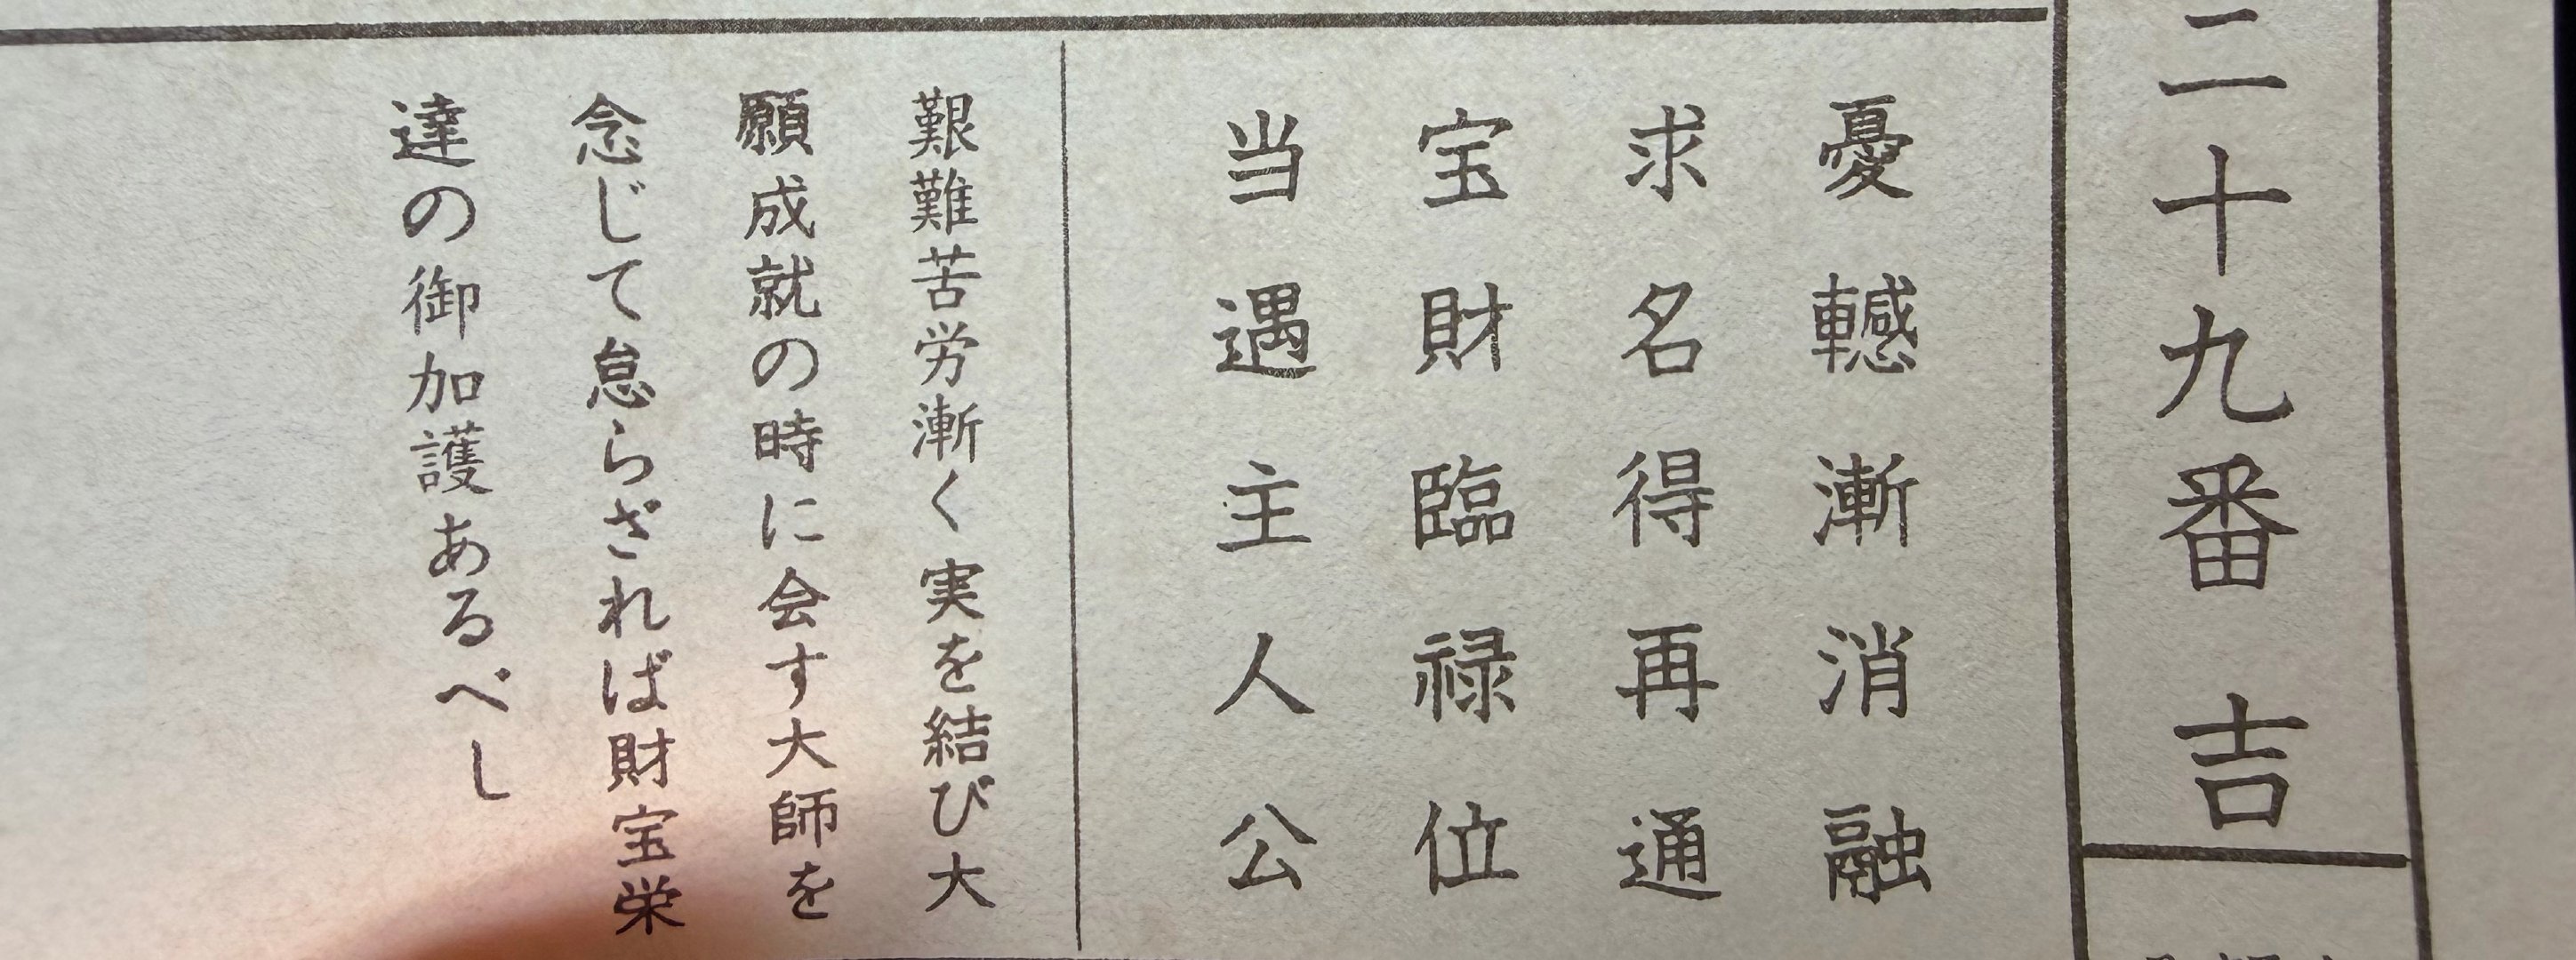 二十九番 吉
憂轗漸消融
求名得再通
宝財臨禄位
当遇主人公
艱難苦労漸く実を結び大
願成就の時に会す大師を
念じて怠らざれば財宝栄
達の御加護あるべし